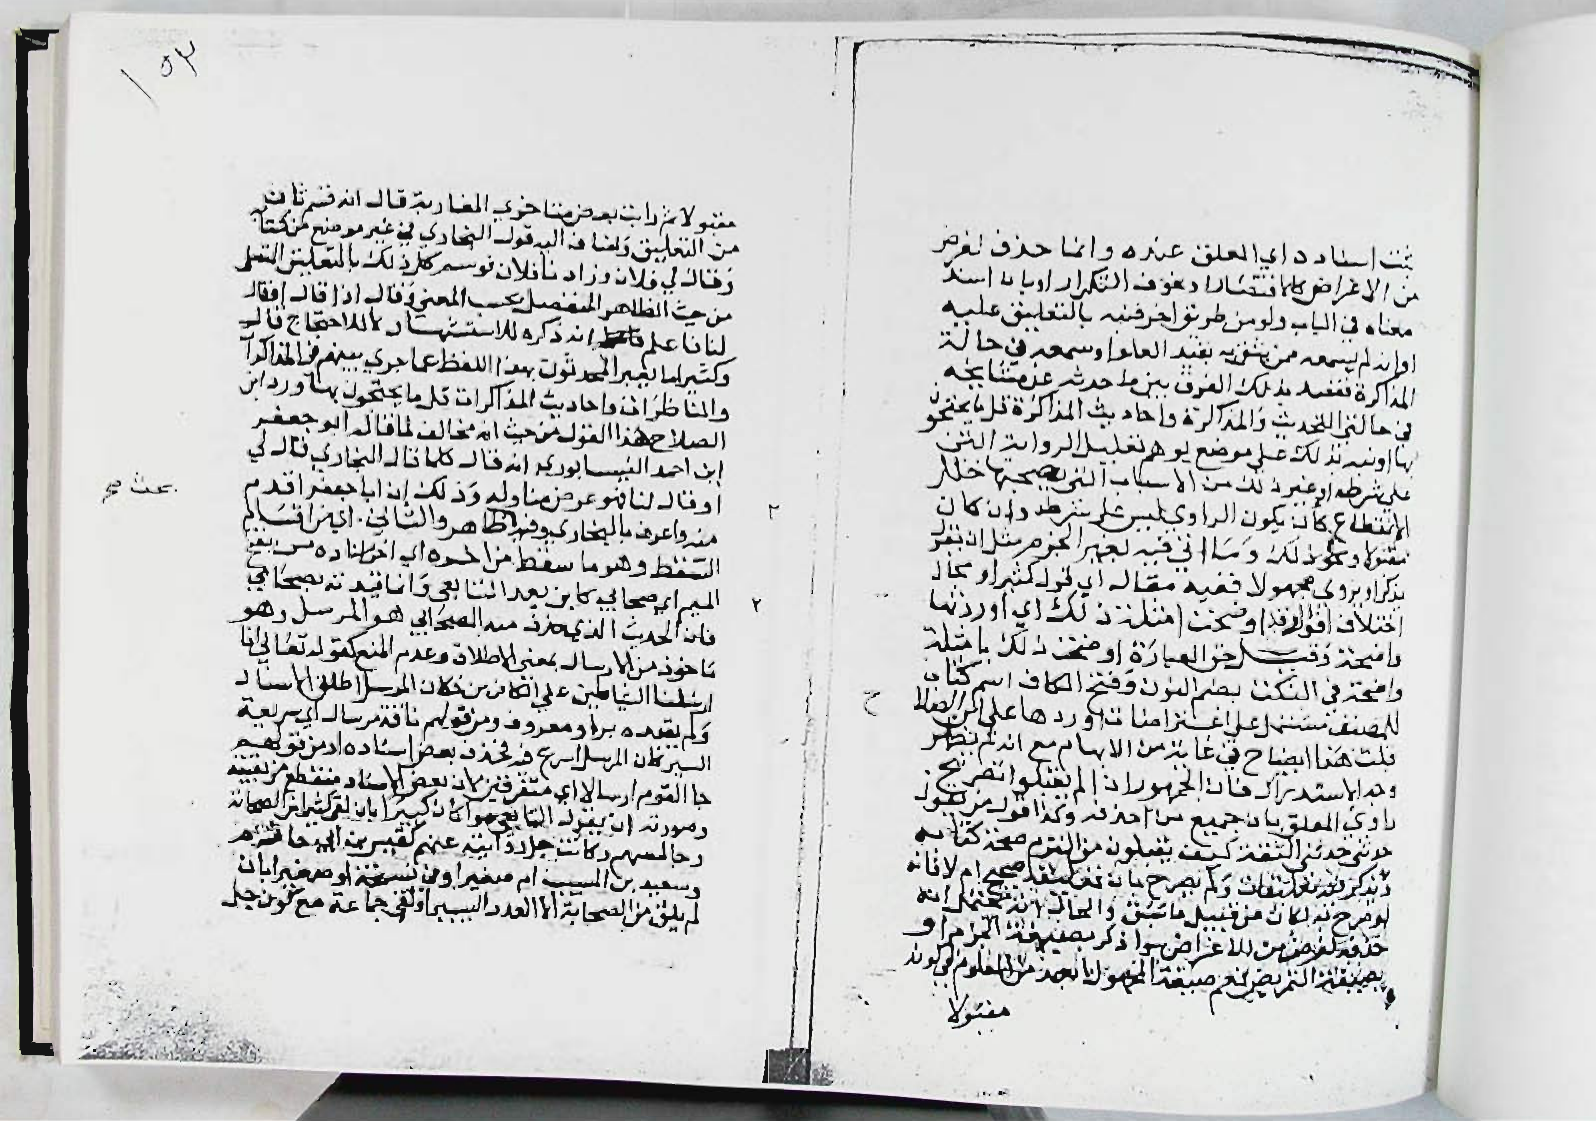 ثبت اسناده اي المعلق عنده وانما حذف لغرض
من الاغراض كالاختصار او خوف التكرار او بان اسند
معناه في الباب ولو من طريق اخر فنبه بالتعليق عليه
او انه لم يسمعه ممن يثق به بقيد العلو او سمعه في حالة
المذاكرة فقصد بذلك الفرق بين ما حدثه عن مشايخه
في حالتي التحديث والمذاكرة واحاديث المذاكرة قل ما يحتجون
بها او نبه بذلك على موضع يوهم تعليل الرواية التي
على شرطه او غير ذلك من الاسباب التي يصحبها خلل
الانقطاع كأن يكون الراوي ليس على شرطه وان كان
مقبولا ونحو ذلك وما اتي فيه بغير الجزم مثل ان يقول
يذكر او يروى مجهولا ففيه مقال اي قول كثير او مجال
اختلاف اقوال وقد اوضحت امثلة ذلك اي اوردتها
واضحة وقيل حق العبارة اوضحت ذلك بامثلة
واضحة في النكت بضم النون وفتح الكاف اسم كتاب
للمصنف مشتمل على اعتراضات اوردها على ابن الصلاح
قلت هذا ايضاح في غاية من الابهام مع انه لم يظهر
وجه الاستدراك فان الجمهور اذا لم يقبلوا تصريح
راوي المعلق بان جميع من احذفه وكذا قول من يقول
حدثني حدثني الثقة كيف يقبلون من التزم صحة كتابه
ويذكر فيه تعليقات ولم يصرح بان صحيح ام لا فانه
لو صرح به لكان من قبيل ما سبق والحال انه يحتمل انه
حذفه لغرض من الاغراض سواء ذكر بصيغة الجزم او
بصيغة التمريض نعم صيغة المجهول ابعد من المعلوم في كونه
مقبولا
١٥٣
مقبولا ثم رايت بعض متاخري المغاربة قال انه قسم ثان
من التعليق واضاف اليه قول البخاري في غير موضع من كتابه
وقال لي فلان وزاد نا فلان فوسم كل ذلك بالتعليق المتصل
من حيث الظاهر المنفصل بحسب المعنى وقال اذا قال او قال
لنا فاعلم انه ذكره للاستشهاد لا للاحتجاج قال
وكثيرا ما يعبر المحدثون بهذا اللفظ عما جرى بينهم في المذاكرات
والمناظرات واحاديث المذاكرات قل ما يحتجون بها ورد ابن
الصلاح هذا القول من حيث انه مخالف لما قاله ابو جعفر
ابن احمد النيسابوري انه قال كلما قال البخاري قال لي
او قال لنا فهو عرض مناوله وذلك ان ابا جعفر اقدم
منه واعرف بالبخاري وفيه ظاهر والثاني اي من اقسام
السقط وهو ما سقط من اخره اي اخر اسناده من بعد
اي صحابي كاين بعد التابعي وانما قيدته بصحابي
فان الحديث الذي حذف منه الصحابي هو المرسل وهو
ماخوذ من الارسال بمعنى الاطلاق وعدم المنع كقوله تعالى انا
ارسلنا الشياطين على الكافرين فكان المرسل اطلق الاسناد
ولم يقيده براو معروف ومن قولهم ناقة مرسال اي سريعة
السير كان المرسل اسرع فيه فحذف بعض اسناده او من قولهم
جا القوم ارسالا اي متفرقين لان بعض الاسناد منقطع من بقيته
وصورته ان يقول التابعي سواء كان كبيرا بان لقي كثيرا من الصحابة
وجالسهم وكانت جل روايته عنهم كقيس بن ابي حازم
وسعيد بن المسيب ام صغيرا وفي نسخة او صغيرا بان
لم يلق من الصحابة الا العدد اليسير او لقي جماعة مع كون جل
بحث صح